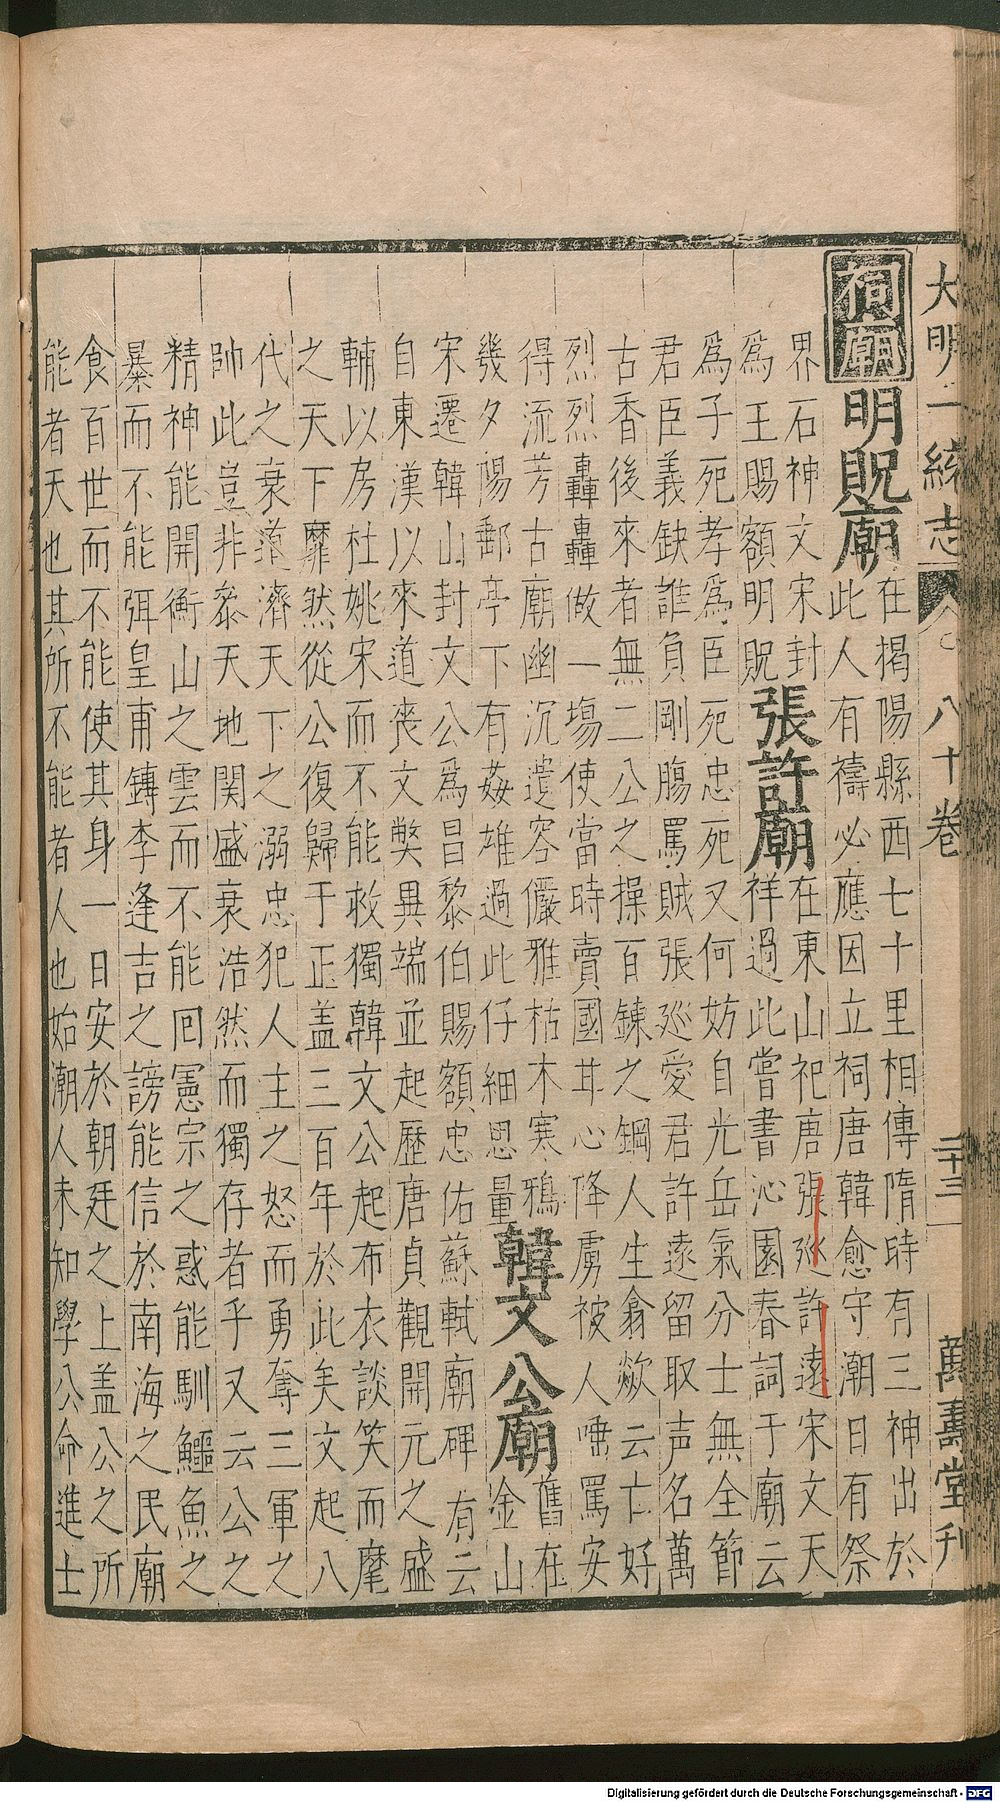 大明一統志 八十卷 二十三 萬壽堂刊
祠廟 明貺廟
在揭陽縣西七十里相傳隋時有三神出於
此人有禱必應因立祠唐韓愈守潮日有祭
界石神文宋封
為王賜額明貺
張許廟
在東山祀唐張廵許遠宋文天
祥過此嘗書沁園春詞于廟云
為子死孝為臣死忠死又何妨自光岳氣分士無全節
君臣義缺誰負剛膓罵賊張廵愛君許遠留取声名萬
古香後來者無二公之操百鍊之鋼人生翕歘云亡好
烈烈轟轟做一塲使當時賣國甘心降虜被人唾罵安
得流芳古廟幽沉遺容儼雅枯木寒鴉
幾夕陽郵亭下有姦雄過此仔細思量
韓文公廟
舊在
金山
宋遷韓山封文公為昌黎伯賜額忠佑蘇軾廟碑有云
自東漢以來道喪文獘異端並起歷唐貞觀開元之盛
輔以房杜姚宋而不能救獨韓文公起布衣談笑而麾
之天下靡然從公復歸于正盖三百年於此矣文起八
代之衰道濟天下之溺忠犯人主之怒而勇奪三軍之
帥此豈非叅天地関盛衰浩然而獨存者乎又云公之
精神能開衡山之雲而不能回憲宗之惑能馴鱷魚之
暴而不能弭皇甫鎛李逢吉之謗能信於南海之民廟
食百世而不能使其身一日安於朝廷之上盖公之所
能者天也其所不能者人也始潮人未知學公命進士
Digitalisierung gefördert durch die Deutsche Forschungsgemeinschaft - DFG